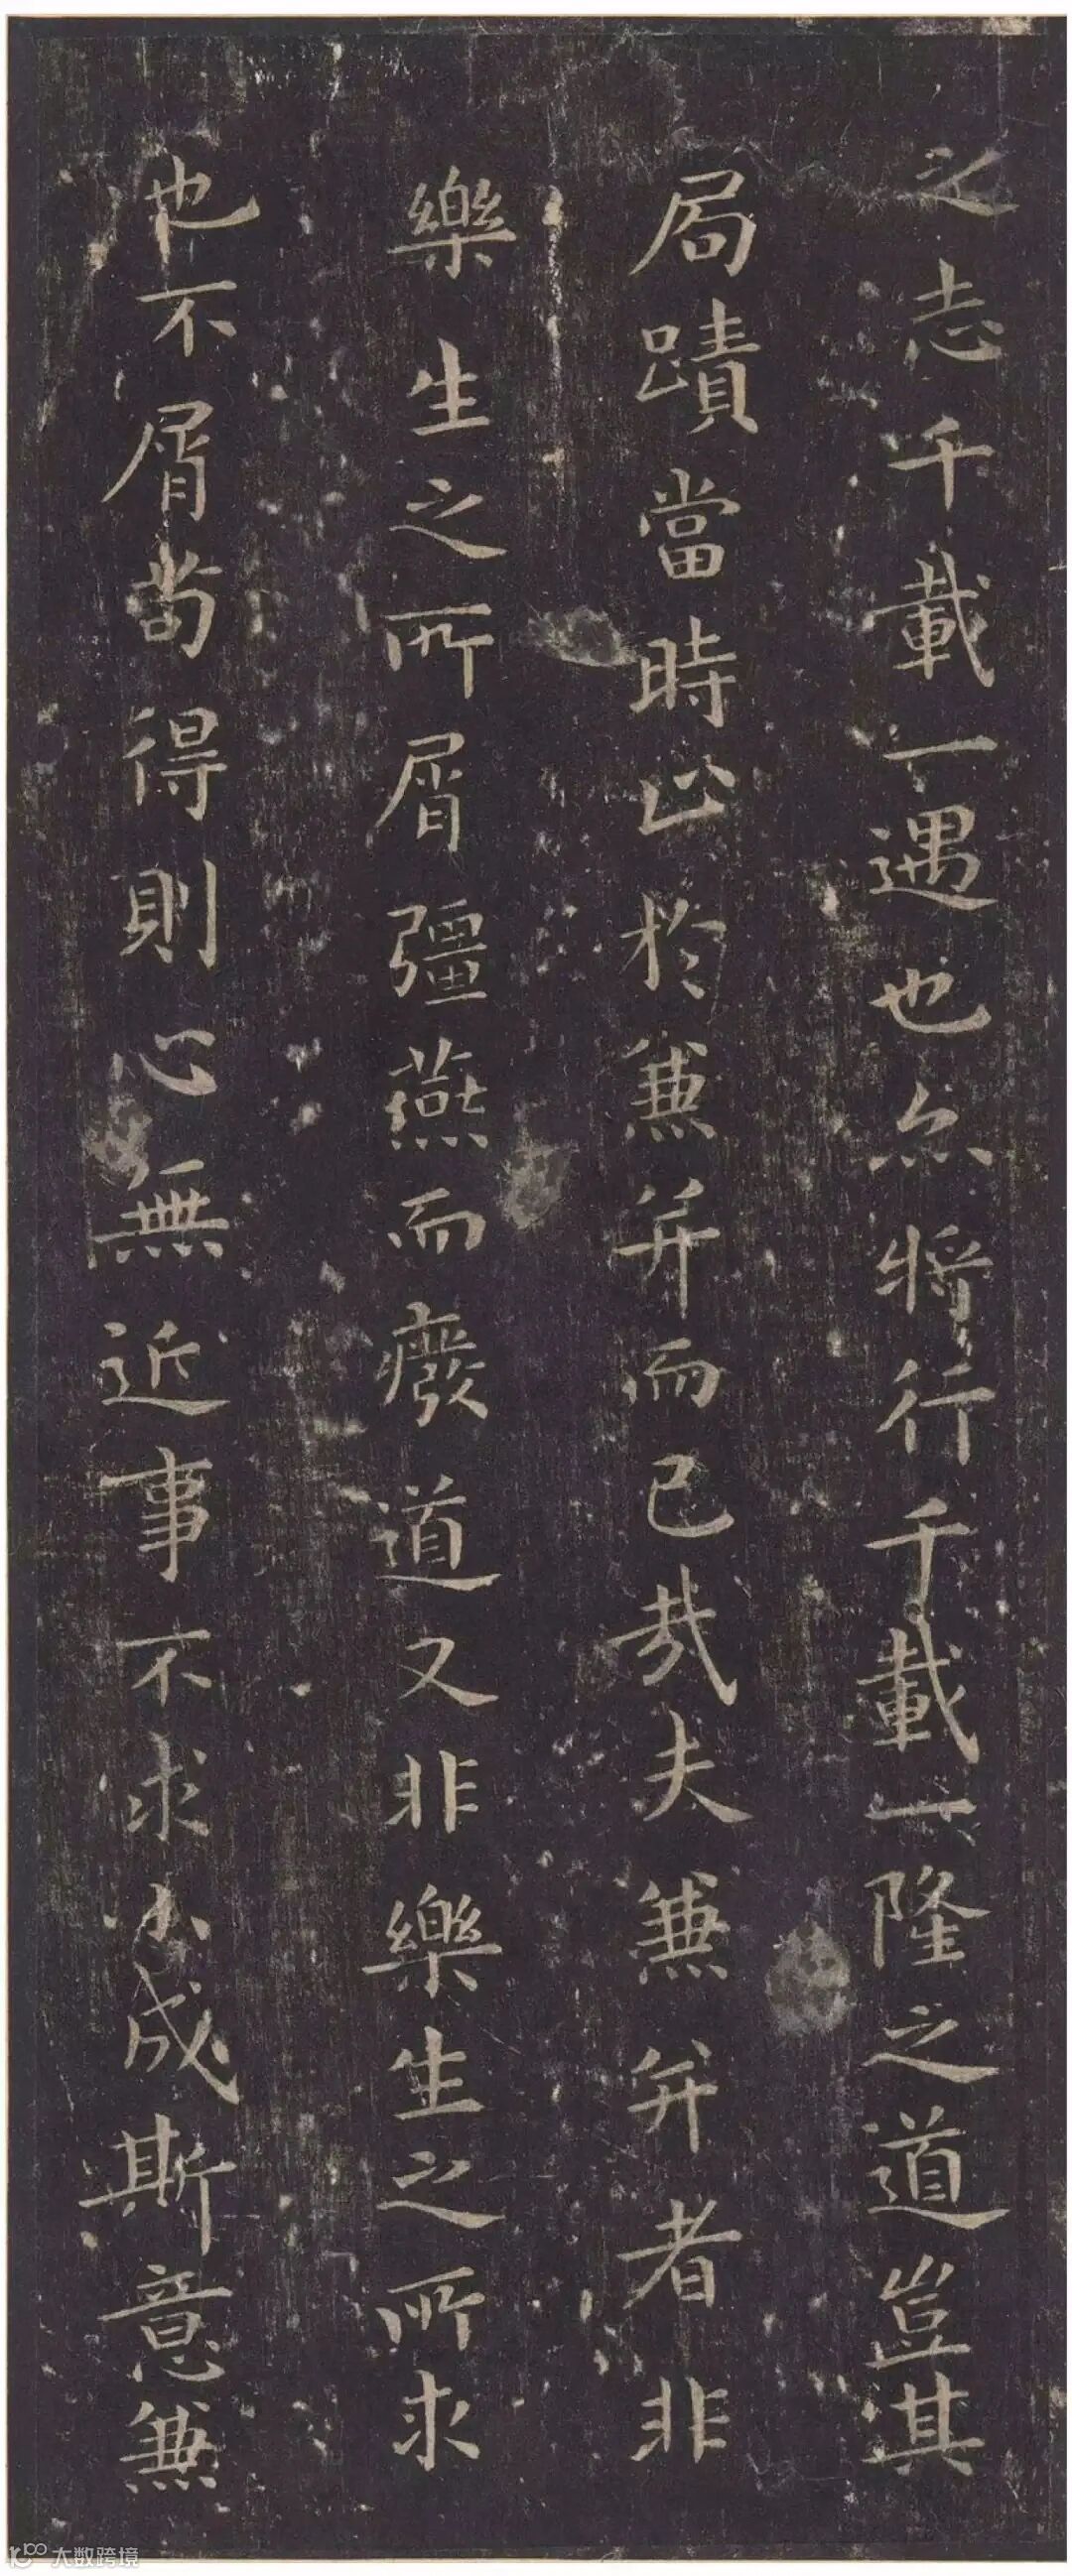 之志千載一遇也亦將行千載一隆之道豈其
局蹟當時止於兼并而已哉夫兼并者非
樂生之所屑彊燕而癈道又非樂生之所求
也不屑茍得則心無近事不求小成斯意兼
大数跨境